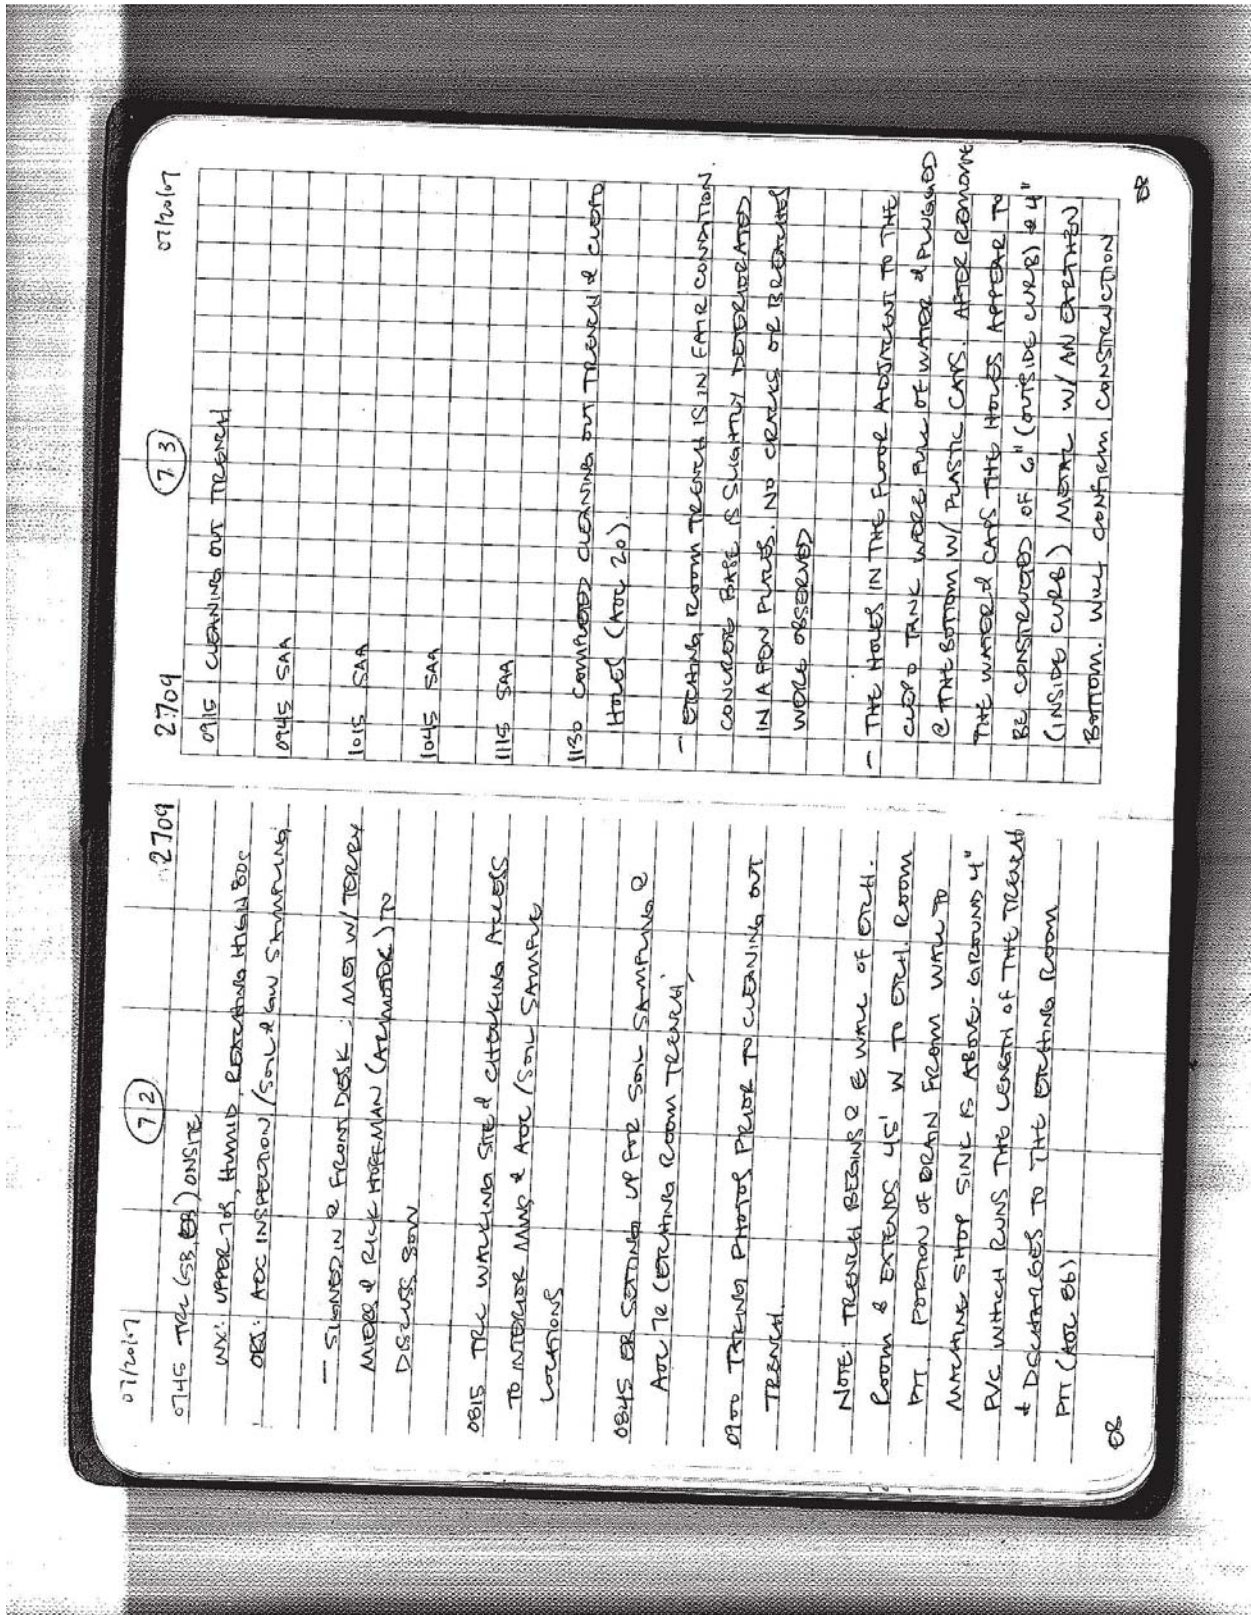 07/20/07
72
2709
0745 TRC (SB, EB) ONSITE
WX: UPPER 70S, HUMID, REACHING HIGH 80S
OBJ: AOC INSPECTION/SOIL & GW SAMPLING
- SIGNED IN @ FRONT DESK. MET W/ TERRY
& RICK HOFFMAN (ARMOTEK) TO
DISCUSS SOW
0815 TRC WALKING SITE & CHECKING ACCESS
TO INTERIOR MWS & AOC/SOIL SAMPLE
LOCATIONS
0845 EB SETTING UP FOR SOIL SAMPLING @
AOC 7R (ETCHING ROOM TRENCH)
0900 TAKING PHOTOS PRIOR TO CLEANING OUT
TRENCH.
NOTE: TRENCH BEGINS @ E WALL OF ETCH.
ROOM & EXTENDS 45' W TO ETCH. ROOM
PIT. PORTION OF DRAIN FROM WALL TO
MACHINE SHOP SINK IS ABOVE-GROUND 4"
PVC WHICH RUNS THE LENGTH OF THE TRENCH
& DISCHARGES TO THE ETCHING ROOM
PIT (AOC 8b)
EB
2709
73
07/20/07
0915 CLEANING OUT TRENCH
0945 SAA
1015 SAA
1045 SAA
1115 SAA
1130 COMPLETED CLEANING OUT TRENCH &
HOLES (AOC 20).
- ETCHING ROOM TRENCH IS IN FAIR CONDITION.
CONCRETE BASE IS SLIGHTLY DETERIORATED
IN A FEW PLACES. NO CRACKS OR BREACHES
WERE OBSERVED
- THE HOLES IN THE FLOOR ADJACENT TO THE
TANK WERE FULL OF WATER & PLUGGED
@ THE BOTTOM W/ PLASTIC CAPS. AFTER REMOVING
THE WATER & CAPS THE HOLES APPEAR TO
BE CONSTRUCTED OF 6" (OUTSIDE CURB) & 4"
(INSIDE CURB) METAL W/ AN EARTHEN
BOTTOM. WILL CONFIRM CONSTRUCTION
EB